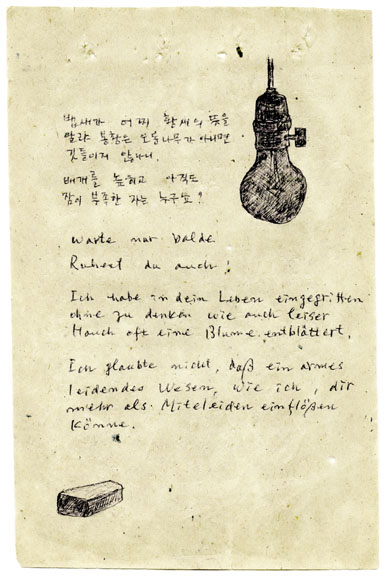 뱁새가 어찌 황새의 뜻을
알랴 봉황은 오동나무가 아니면
깃들이지 않나니.
베개를 높히고 아직도
잠이 부족한 자는 누구뇨?
Warte nur balde
Ruhest du auch!
Ich habe in dein Leben eingegriffen
ohne zu denken wie auch leiser
Hauch oft eine Blume entblättert.
Ich glaubte nicht, daß ein armes
leidendes Wesen, wie ich, dir
mehr als Miteleiden einflößen
Könne.